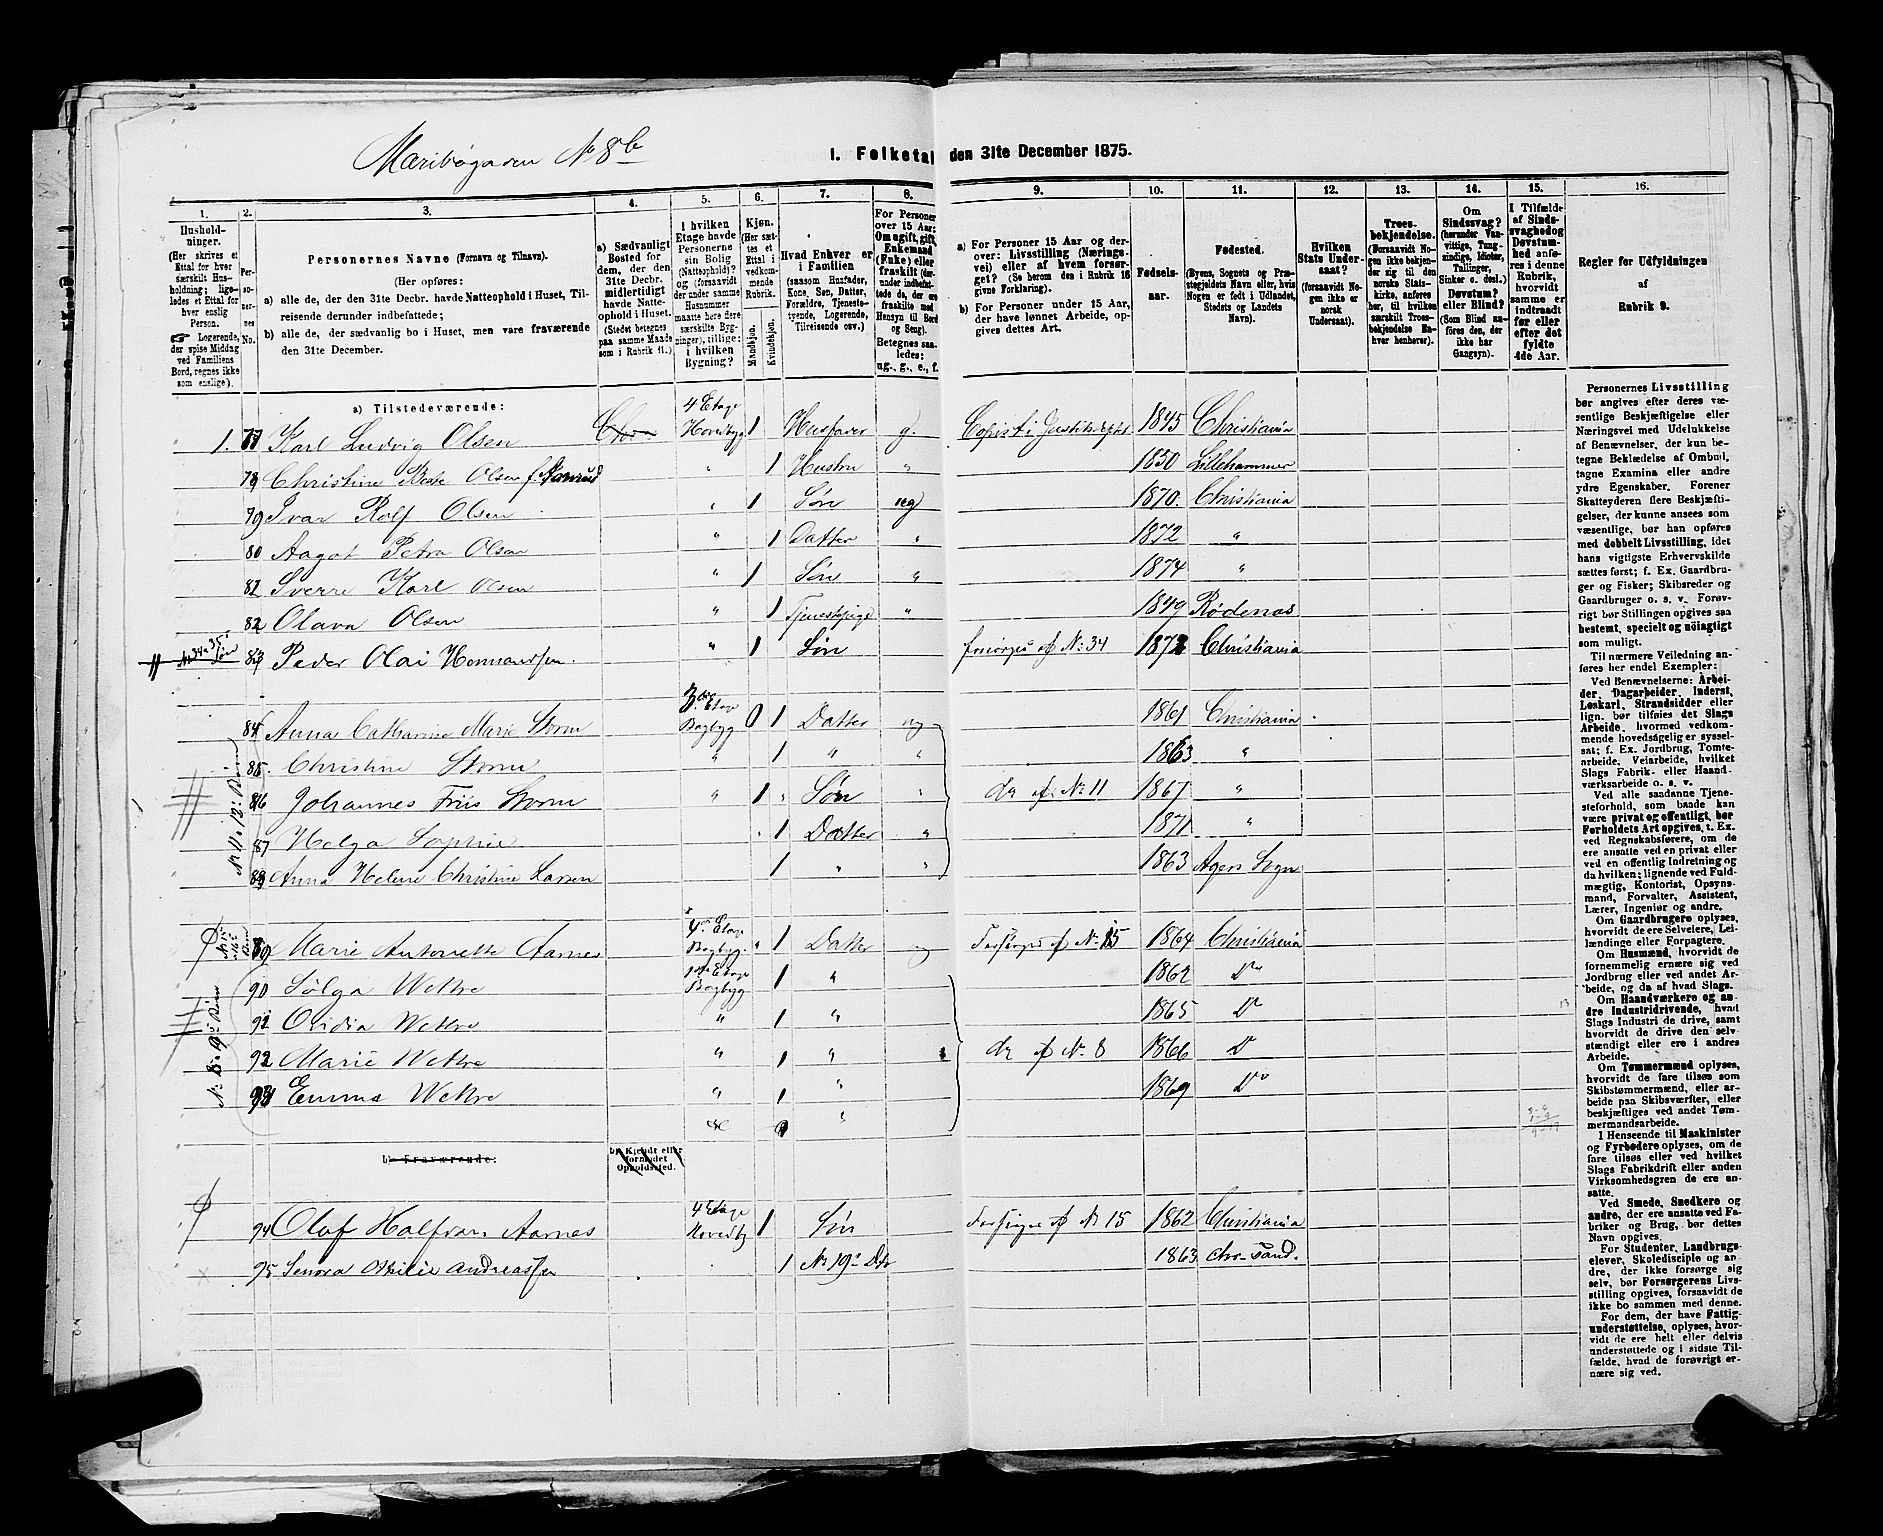 Maribogaden No 8b
I. Folketal den 31te December 1875.
1. 2. 3. 4. 5. 6. 7. 8. 9. 10. 11. 12. 13. 14. 15. 16.
Husholdninger. (Her skrives et Ettal for hver særskilt Husholdning; ligeledes et Ettal for hver enslig Person.
☞ Logerende, der spise Middag ved Familiens Bord, regnes ikke som enslige).
Personernes No.
Personernes Navne (Fornavn og Tilnavn).
(Her opføres:
a) alle de, der den 31te Decbr. havde Natteophold i Huset, Tilreisende derunder indbefattede;
b) alle de, der sædvanlig bo i Huset, men vare fraværende den 31te December.
a) Sædvanligt Bosted for dem, der den 31te Decbr. midlertidigt havde Natteophold i Huset. (Stedet betegnes paa samme Maade som i Rubrik 11.)
I hvilken Etage havde Personerne sin Bolig (Natteophold)? og (forsaavidt der under samme Hasnummer maatte høre flere særskilte Bygninger), tillige: i hvilken Bygning?
Kjøn. (Her sættes et Ettal i vedkommende Rubrik.
Mandkjøn. Kvindekjøn.
Hvad Enhver er i Familien (saasom Husfader, Kone, Søn, Datter, Forældre, Tjenestetyende, Logerende, Tilreisende osv.)
For Personer over 15 Aar: Om ugift, gift, Enkemand (Enke) eller fraskilt (derunder indbefattede de, der ere fraskilte med Hensyn til Bord og Seng). Betegnes saaledes: ug., g., e., f.
a) For Personer 15 Aar og derover: Livsstilling (Næringsvei) eller af hvem forsørget? (Se herom den i Rubrik 16 givne Forklaring).
b) For Personer under 15 Aar, der have lønnet Arbeide, opgives dettes Art.
Fødselsaar.
Fødested. (Byens, Sognets og Præstegjeldets Navn eller, hvis Nogen er født i Udlandet, Stedets og Landets Navn).
Hvilken Stats Undersaat? (forsaavidt Nogen ikke er norsk Undersaat).
Troesbekjendelse. (Forsaavidt Nogen ikke bekjender sig til den norske Statskirke, anføres her, til hvilken særskilt Troesbekjendelse Enhver henhører).
Om Sindssvag? (herunder Vanvittige, Tungsindige, Idioter, Tullinger, Sinker o. desl.) Døvstum? eller Blind? (Som Blind anføres den, der ikke har Gangsyn).
I Tilfælde af Sindssvaghed og Døvstumhed, anføres i denne Rubrik, hvorvidt samme er indtraadt før eller efter det fyldte 4de Aar.
Regler for Udfyldningen af Rubrik 9.
a) Tilstedeværende:
1. 77 Karl Ludvig Olsen 4 Etage Hovedbyg 1 Husfader g. Copist i Justitsdept 1845 Christiania
78 Christine Beate Olsen f. Aamrud " 1 Hustru " 1850 Lillehammer
79 Ivar Rolf Olsen " 1 Søn ug 1870. Christiania
80 Aagot Petra Olsen " 1 Datter " 1872 "
81 Sverre Karl Olsen " 1 Søn " 1874 "
82 Olava Olsen " 1 Tjenestepige " 1849 Rødenæs
No 34 & 35's Søn 83 Peder Olai " 1 Søn forsørges af No: 34 1873 Christiania
84 Anna Catharine Marie Storm 3die Etage Bagbyg 0 1 Datter ug 1861 Christiania
85. Christine Storm " 1 " " 1863 "
86 Johannes Friis Storm " 1 " Søn " do af No 11 1867 "
87 Helga Sophie " 1 Datter " 1871 "
88 Anna Helene Christine Larsen 1 " " 1863 Agers Sogn
No 11 o 12's Børn
89 Marie Antonette Aarnes 4de Etage Bagbyg. " 1 Datter ug Forsørges af No 15 1864 Christiania
90 Sølga Wettre 1ste Etage Bagbyg 1 " 1862 Do
91 Ovidia Wettre " 1 " 1865 Do
92 Marie Wettre " 1 " do af No. 8 1866 Do
93 Emma Wettre " 1 " 1869 Do
No 8 o 9's Børn
b) Fraværende:
b) Kjendt eller formodet Opholdssted.
94 Olaf Halfdan Aarnes 4 Etage Hovedby 1 Søn Forsørges af No 15 1862 Christiania
95 Othilie Andreassen 1 No 19's Dtr 1863 Chr.sand.
Personernes Livsstilling bør angives efter deres væsentlige Beskjæftigelse eller Næringsvei med Udelukkelse af Benævnelser, der kun betegne Beklædelse af Ombud, tagne Examina eller andre ydre Egenskaber. Forener Skatteyderen flere Beskjæftigelser, der kunne ansees som væsentlige, bør han opføres med dobbelt Livsstilling, idet hans vigtigste Erhvervskilde sættes først; f. Ex. Gaardbruger og Fisker; Skibsreder og Gaardbruger o. s. v. Forøvrigt bør Stillingen opgives saa bestemt, specielt og nøiagtigt som muligt.
Til nærmere Veiledning anføres her endel Exempler:
Ved Benævnelserne: Arbeider, Dagarbeider, Inderst, Løskarl, Strandsidder eller lign. bør tilføies det Slags Arbeide, hvormed vedkommende hovedsagelig er sysselsat; f. Ex. Jordbrug, Tomtearbeide, Veiarbeide, hvilket Slags Fabrik- eller Haandværksarbeide o. s. v.
Ved alle saadanne Tjenesteforhold, som baade kan være privat og offentligt, bør Forholdets Art opgives, t. Ex. ved Regnskabsførere, om de ere ansatte ved en privat eller ved en offentlig Indretning og da hvilken; lignende ved Fuldmægtig, Kontorist, Opsynsmand, Forvalter, Assistent, Lærer, Ingeniør og andre.
Om Gaardbrugere oplyses, hvorvidt de ere Selveiere, Leilændinge eller Forpagtere.
Om Husmænd, hvorvidt de fornemmelig ernære sig ved Jordbrug eller ved andet Arbeide, og da af hvad Slags.
Om Haandværkere og andre Industridrivende, hvad Slags Industri de drive, samt hvorvidt de drive den selvstændigt eller ere i andres Arbeide.
Om Tømmermænd oplyses, hvorvidt de fare tilsøs som Skibstømmermænd, eller arbeide paa Skibsværfter, eller beskjæftiges ved andet Tømmermandsarbeide.
I Henseende til Maskinister og Fyrbødere oplyses, om de fare tilsøs eller ved hvilket Slags Fabrikdrift eller anden Virksomhedsgren de ere ansatte.
Ved Smede, Snedkere og andre, der ere ansatte ved Fabriker og Brug, bør dettes Navn opgives.
For Studenter, Landbrugselever, Skoledisciple og andre, der ikke forsørge sig selv, bør Forsørgerens Livsstilling opgives, forsaavidt de ikke bo sammen med denne.
For dem, der have Fattigunderstøttelse, oplyses, hvorvidt de ere helt eller delvis understøttede og i sidste Tilfælde, hvad de forøvrigt ernære sig ved.